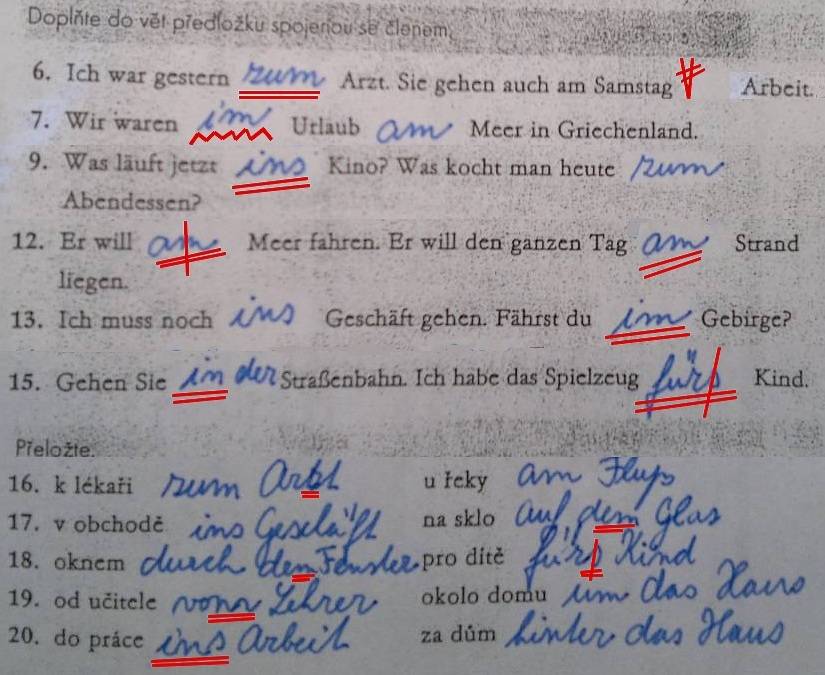 Doplňte do vět předložku spojenou se členem.
6. Ich war gestern zum Arzt. Sie gehen auch am Samstag Arbeit.
7. Wir waren im Urlaub am Meer in Griechenland.
9. Was läuft jetzt ins Kino? Was kocht man heute zum
Abendessen?
12. Er will am Meer fahren. Er will den ganzen Tag am Strand
liegen.
13. Ich muss noch ins Geschäft gehen. Fährst du im Gebirge?
15. Gehen Sie in der Straßenbahn. Ich habe das Spielzeug fürs Kind.
Přeložte.
16. k lékaři zum Arbt u řeky am Fluß
17. v obchodě ins Geschäft na sklo auf dem Glas
18. oknem durch dem Fenster pro dítě fürs Kind
19. od učitele vonn Lehrer okolo domu um das Haus
20. do práce ins Arbeit za dům hinter das Haus